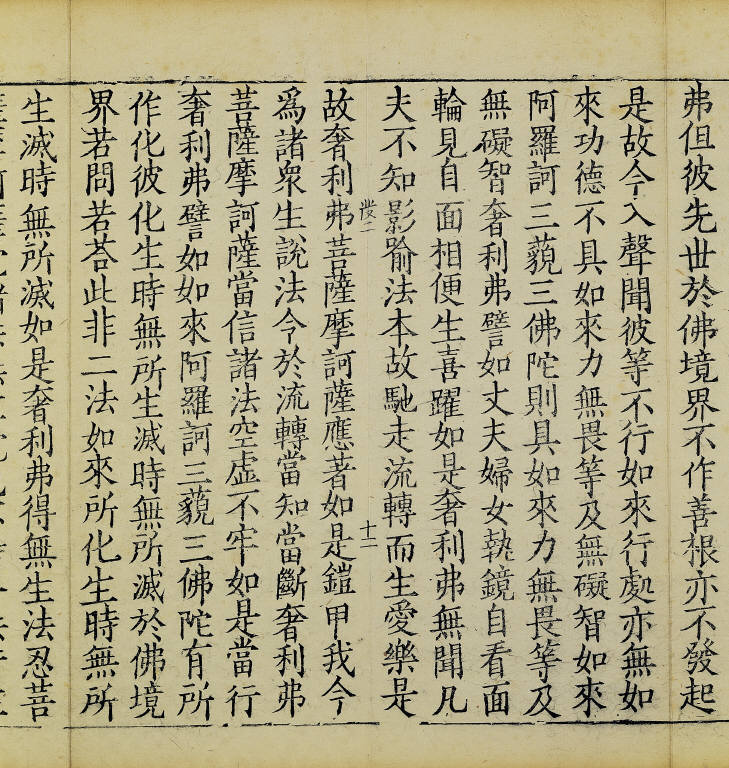 弗但彼先世於佛境界不作善根亦不發起
是故今入聲聞彼等不行如來行處亦無如
來功德不具如來力無畏等及無礙智如來
阿羅訶三藐三佛陀則具如來力無畏等及
無礙智奢利弗譬如丈夫婦女執鏡自看面
輪見自面相便生喜躍如是奢利弗無聞凡
夫不知影喻法本故馳走流轉而生愛樂是
十二
故奢利弗菩薩摩訶薩應著如是鎧甲我今
為諸眾生說法令於流轉當知當斷奢利弗
菩薩摩訶薩當信諸法空虛不牢如是當行
奢利弗譬如如來阿羅訶三藐三佛陀有所
作化彼化生時無所生滅時無所滅於佛境
界若問若荅此非二法如來所化生時無所
生滅時無所滅如是奢利弗得無生法忍菩